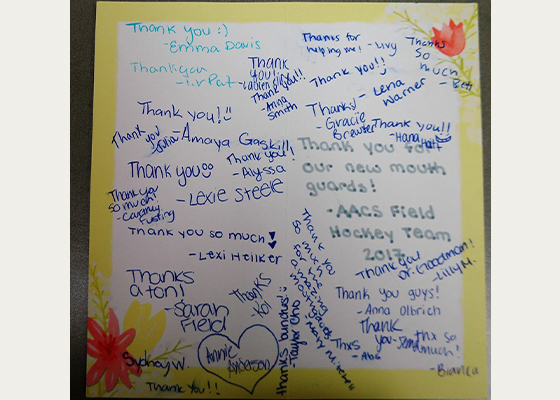 Thank you :)
-Emma Davis
Thank you
Thanks for
helping me! -Livy
Thanks
so
much
Thank
you!!
Thank you!!
-Anna
Smith
Thank you!!
- Lena
Warner
Thank you!!
Thank you
-Julia
-Amaya Gaskill
Thanks!
-Gracie
Brewster
Thank you!!
-Hana
Thank you!!
-Alyssa
Thank you
-Lexie Steele
Thank you
so much!
Thank you for
our new mouth
guards!
-AACS Field
Hockey Team
2017
Thank you so much
-Lexi Heilker
Thank you
Dr. Goodman!
-Lilly M.
Thanks
a ton!
-Sarah
Field
Thanks
Thank you
so much
for the
amazing
mouthguards
thanks bunches!
-Taylor Cho
Thank you guys!
-Anna Olbrich
Thank
you
thx so
much!
-Bianca
Thxs
-Abe
Sydney W.
Annie
Anderson
Thank you!!